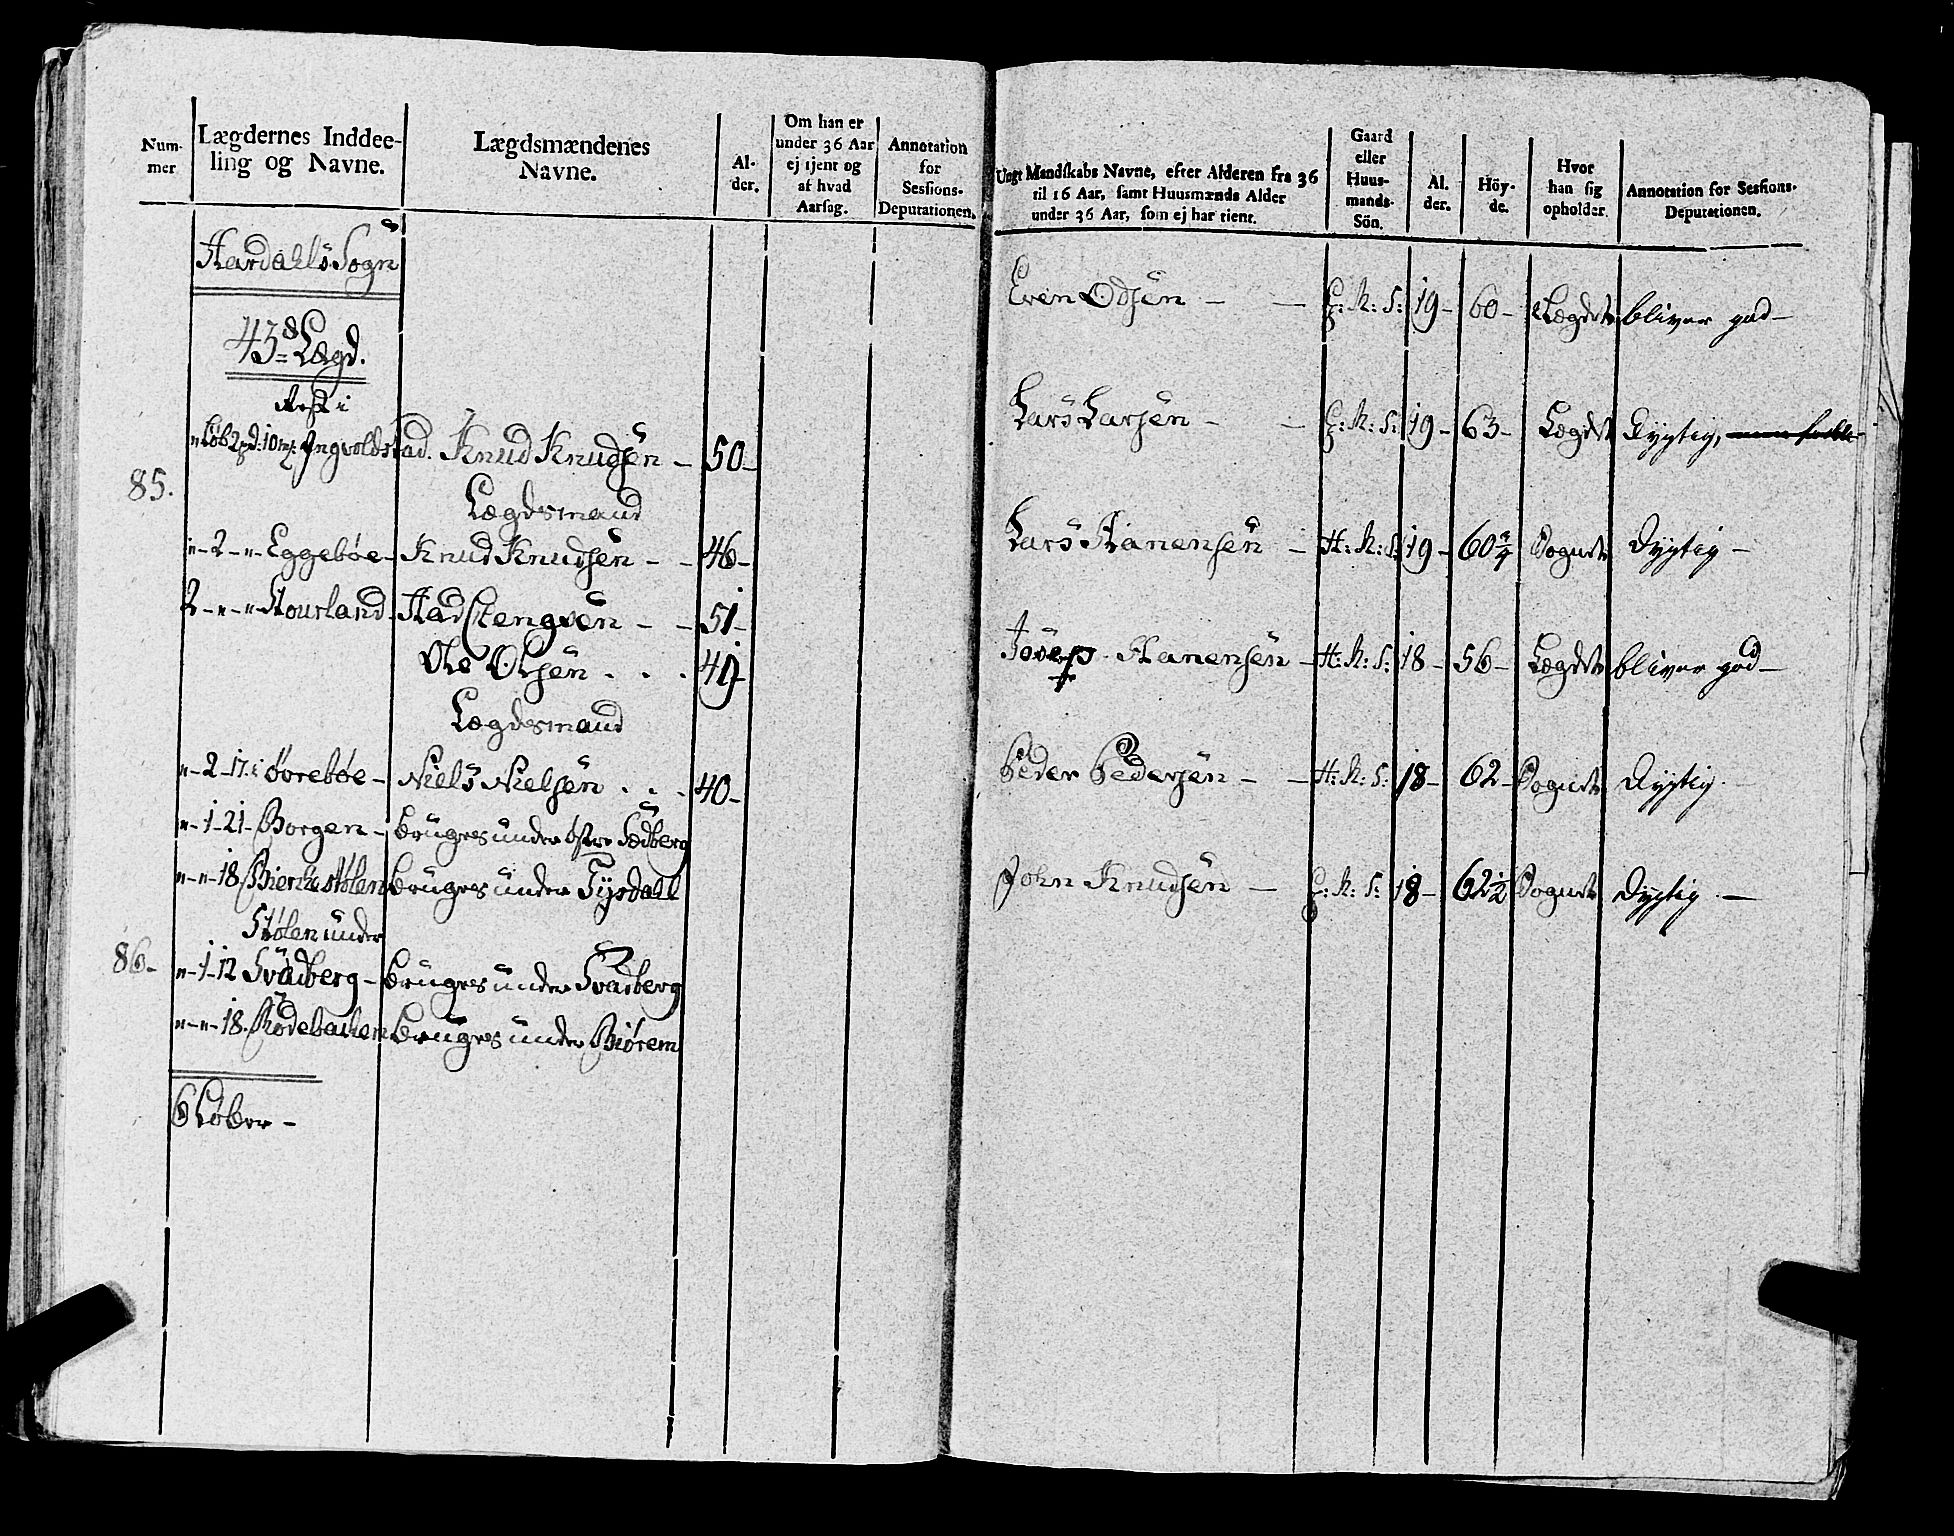 Num-
mer
Lægdernes Inddee-
ling og Navne.
Lægdsmændenes
Navne.
Al-
der.
Om han er
under 36 Aar
ej tjent og
af hvad
Aarsag.
Annotation
for
Sessions-
Deputationen.
Aardahls Sogn
43de Lægd.
Rest i
85.
"Løb 2pd: 10mk: Ingvoldstad. Knud Knudsen – 50–
Lægdsmand
"–2–"– Eggebøe – Knud Knudsen – – 46–
2–"–"– Stourland – Aad Stengsen – – 51–
Ole Olsen . . . 49
Lægdsmand
"–2–17. i Øvrebøe – Niels Nielsen . . . 40–
"–1–21– Borgen – bruges under østre Sædberg
"–"–18. Bierkestølen bruges under Tysdall
Stølen under
86–
"–1–12 Svadberg – bruges under Svadberg
"–"–18. Rødebachen bruges under Biørem
6 Løber –
Ungt Mandskabs Navne, efter Alderen fra 36
til 16 Aar, samt Huusmænds Alder
under 36 Aar, som ej har tient.
Gaard
eller
Huus-
mands-
Sön.
Al.
der.
Höy-
de.
Hvor
han sig
opholder.
Annotation for Sessions-
Deputationen.
Even Odsen – – G: M: S: 19– 60– Lægdet bliver god –
Lars Larsen – – G: M: S: 19– 63– Lægdet Dygtig,
Lars Hanensen – H: M: S: 19– 60 Sognet Dygtig –
Josep Hanensen – H: M: S: 18– 56– Lægdet bliver god –
Peder Pedersen – – H: M: S: 18– 62– Sognet Dygtig.
John Knudsen – G: M: S: 18– 62½ Sognet Dygtig –